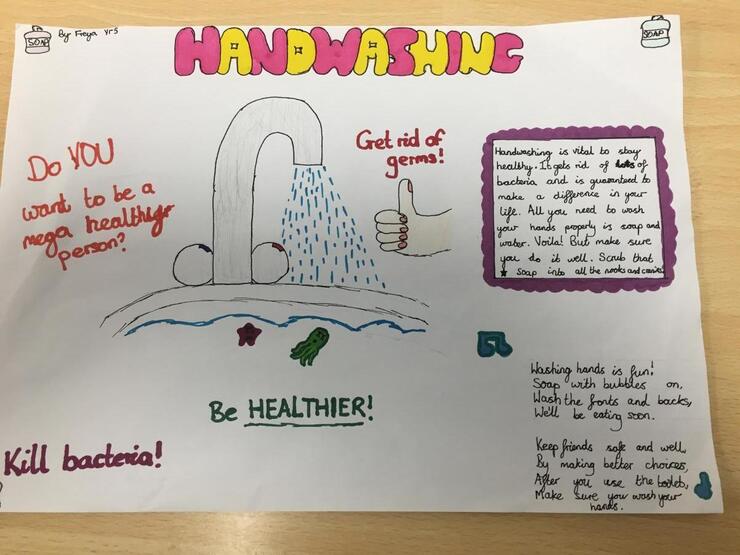 SOAP
By Freya Yr5
HANDWASHING
SOAP
Do YOU
want to be a
mega healthiyr
person?
Get rid of
germs!
Handwashing is vital to stay
healthy. It gets rid of lots of
bacteria and is guaranteed to
make a difference in your
life. All you need to wash
your hands properly is soap and
water. Voila! But make sure
you do it well. Scrub that
soap into all the nooks and crannies
Be HEALTHIER!
Kill bacteria!
Washing hands is fun!
Soap with bubbles on,
Wash the fonts and backs,
We'll be eating soon.
Keep friends safe and well,
By making better choices,
After you use the toilets,
Make sure you wash your
hands.